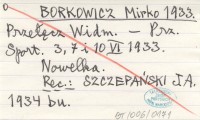 BORKOWICZ Mirko 1933.
Przełęcz Widm. — Prz.
Sport. 3, 7 i 10 VI 1933.
Nowelka.
Rec.: SZCZEPAŃSKI J.A.
1934 bu.
BT 1006/0471